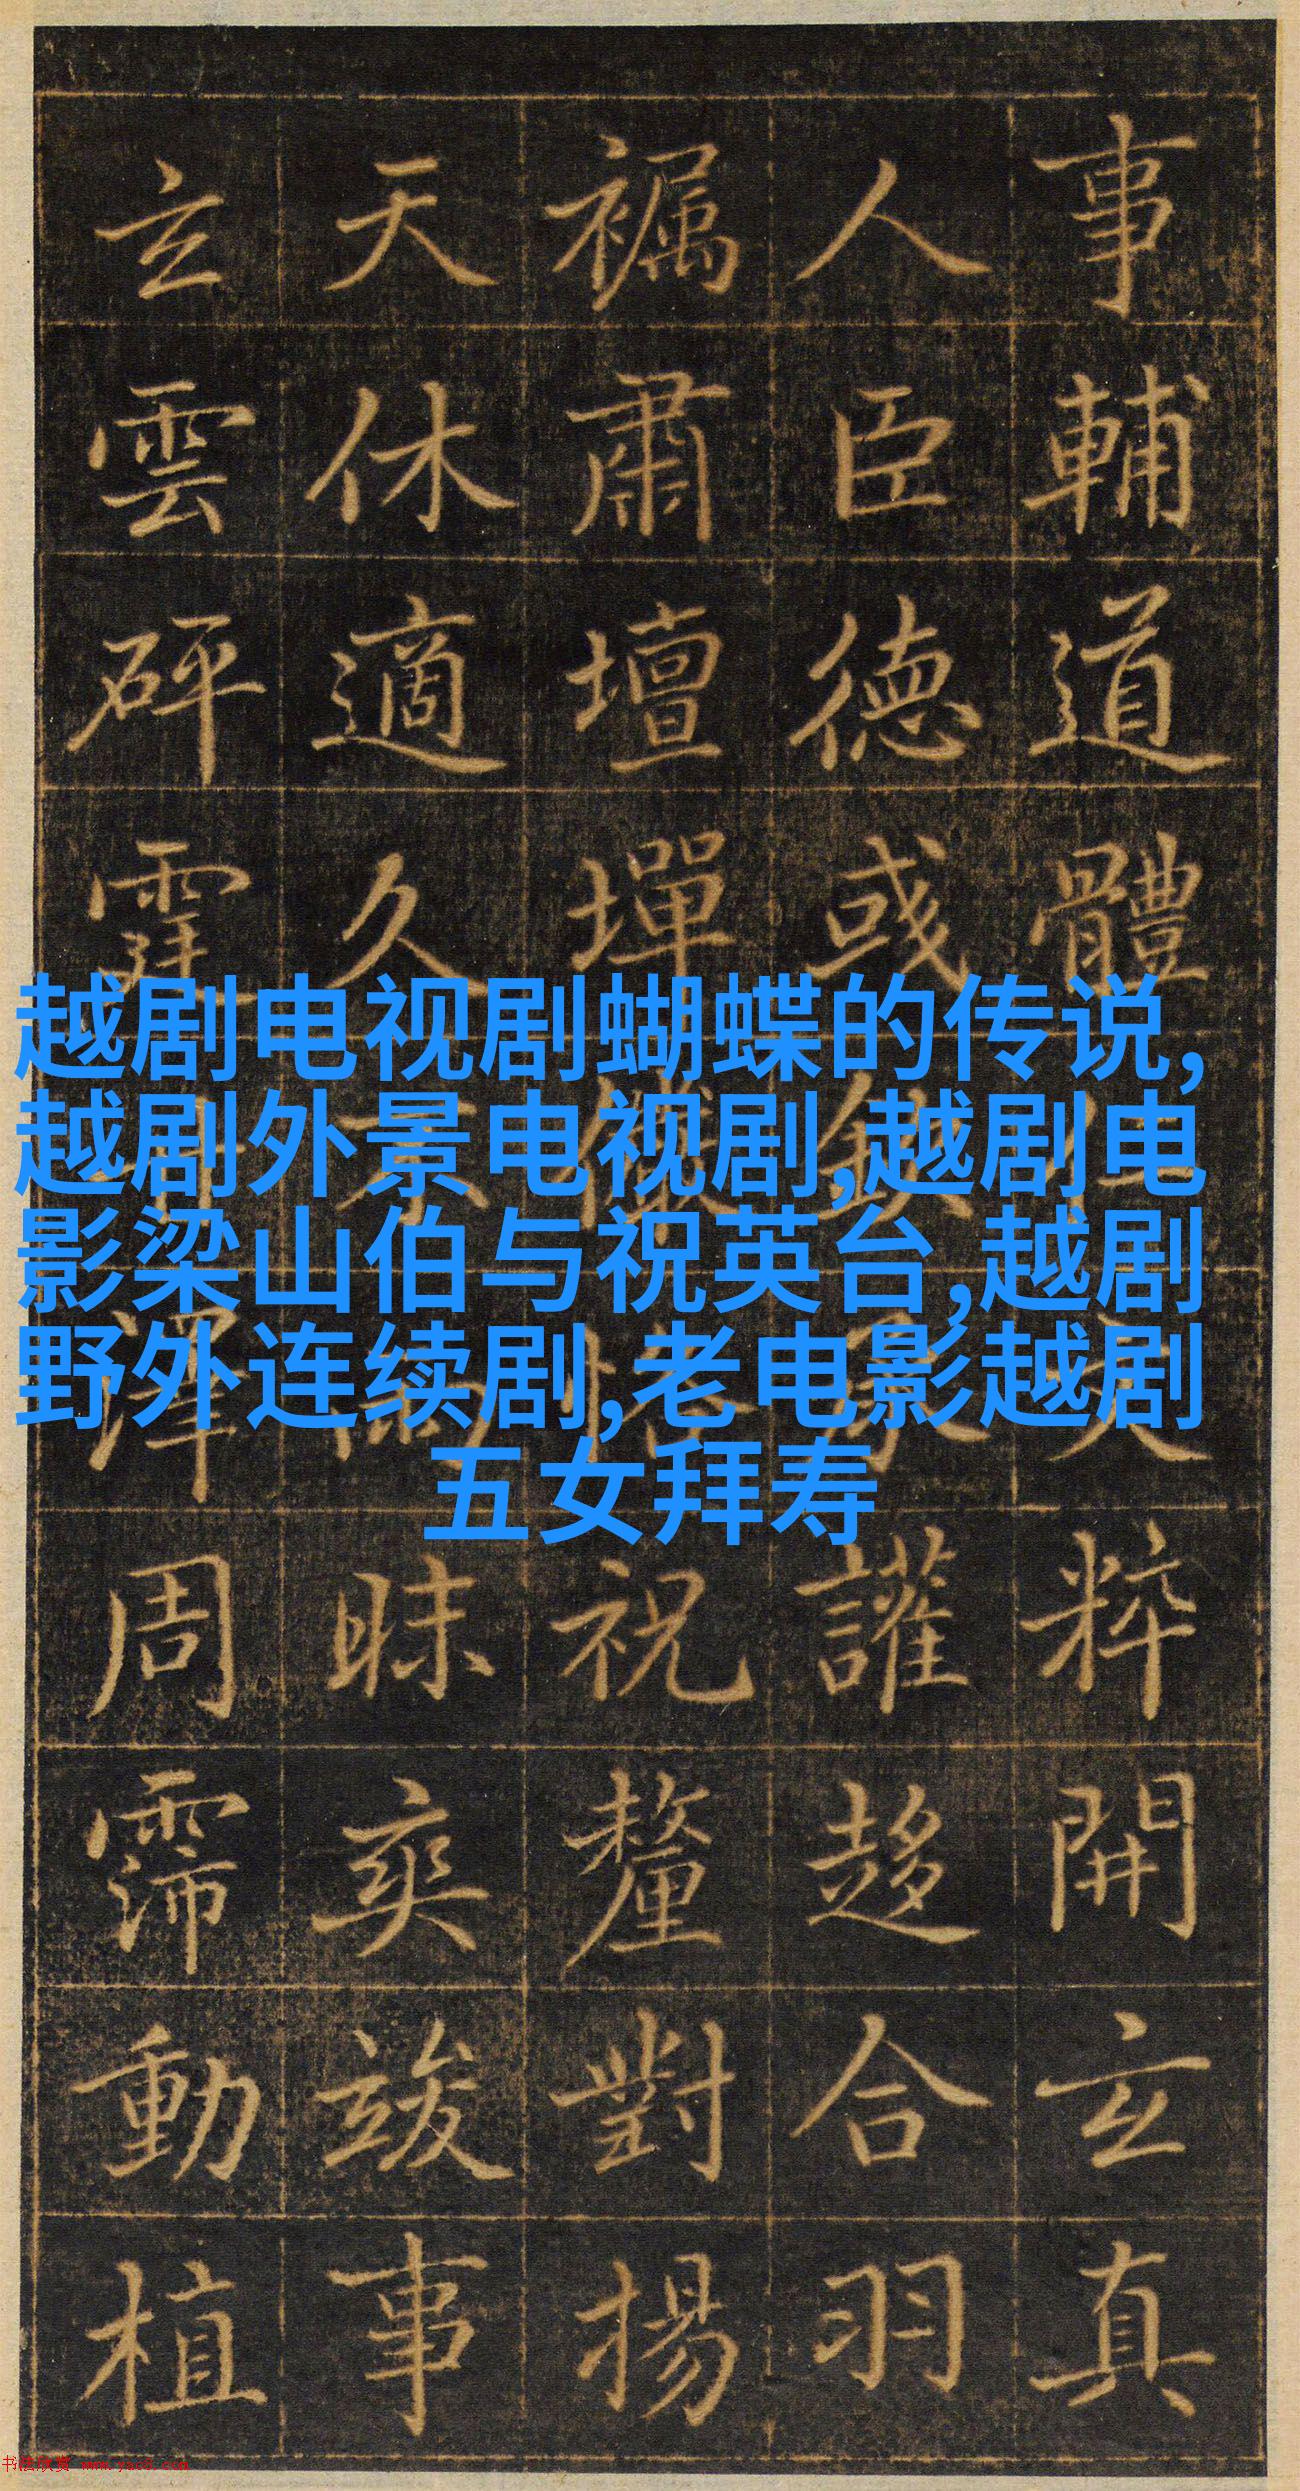 事輔道體粹開玄真
人臣德或讙趍合羽
肅壇墠祝釐對揚
天休適久昧爽竣事
玄雲砰澤周霈動植
越剧电视剧蝴蝶的传说,
越剧外景电视剧,越剧电
影梁山伯与祝英台,越剧
野外连续剧,老电影越剧
五女拜寿
书法欣赏 www.yac8.com